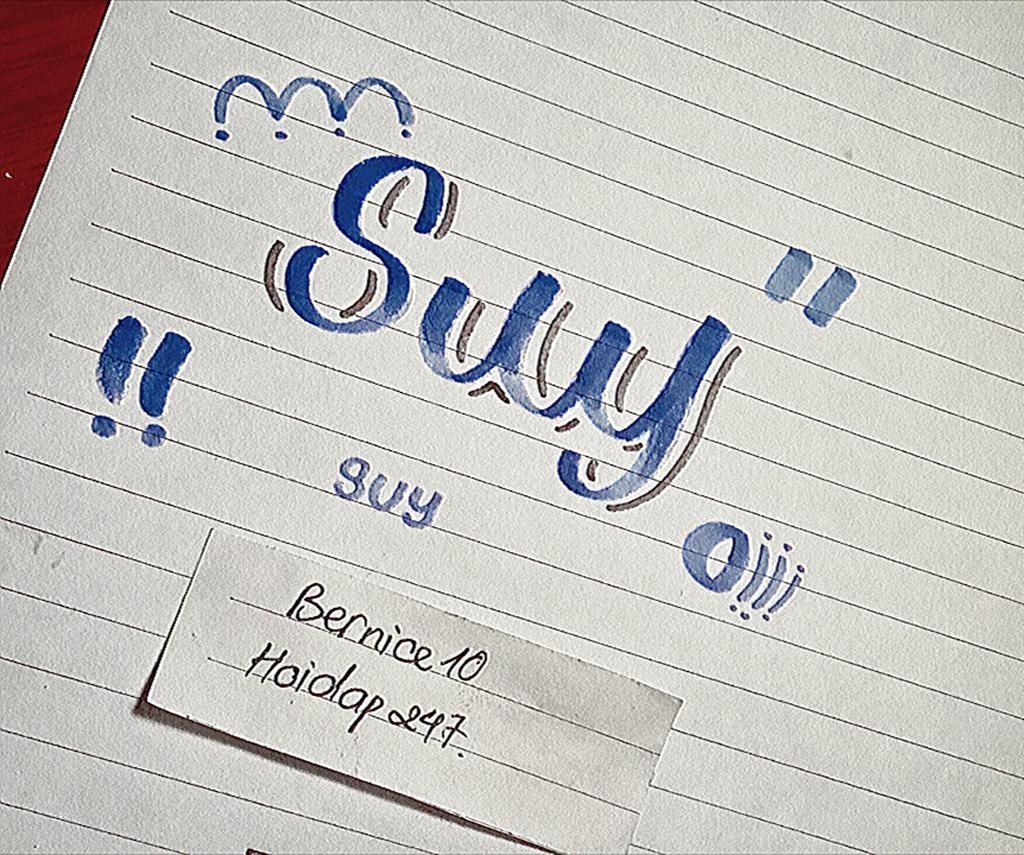 Suy
!!
"
suy
Bernice 10
Hoidap 247.